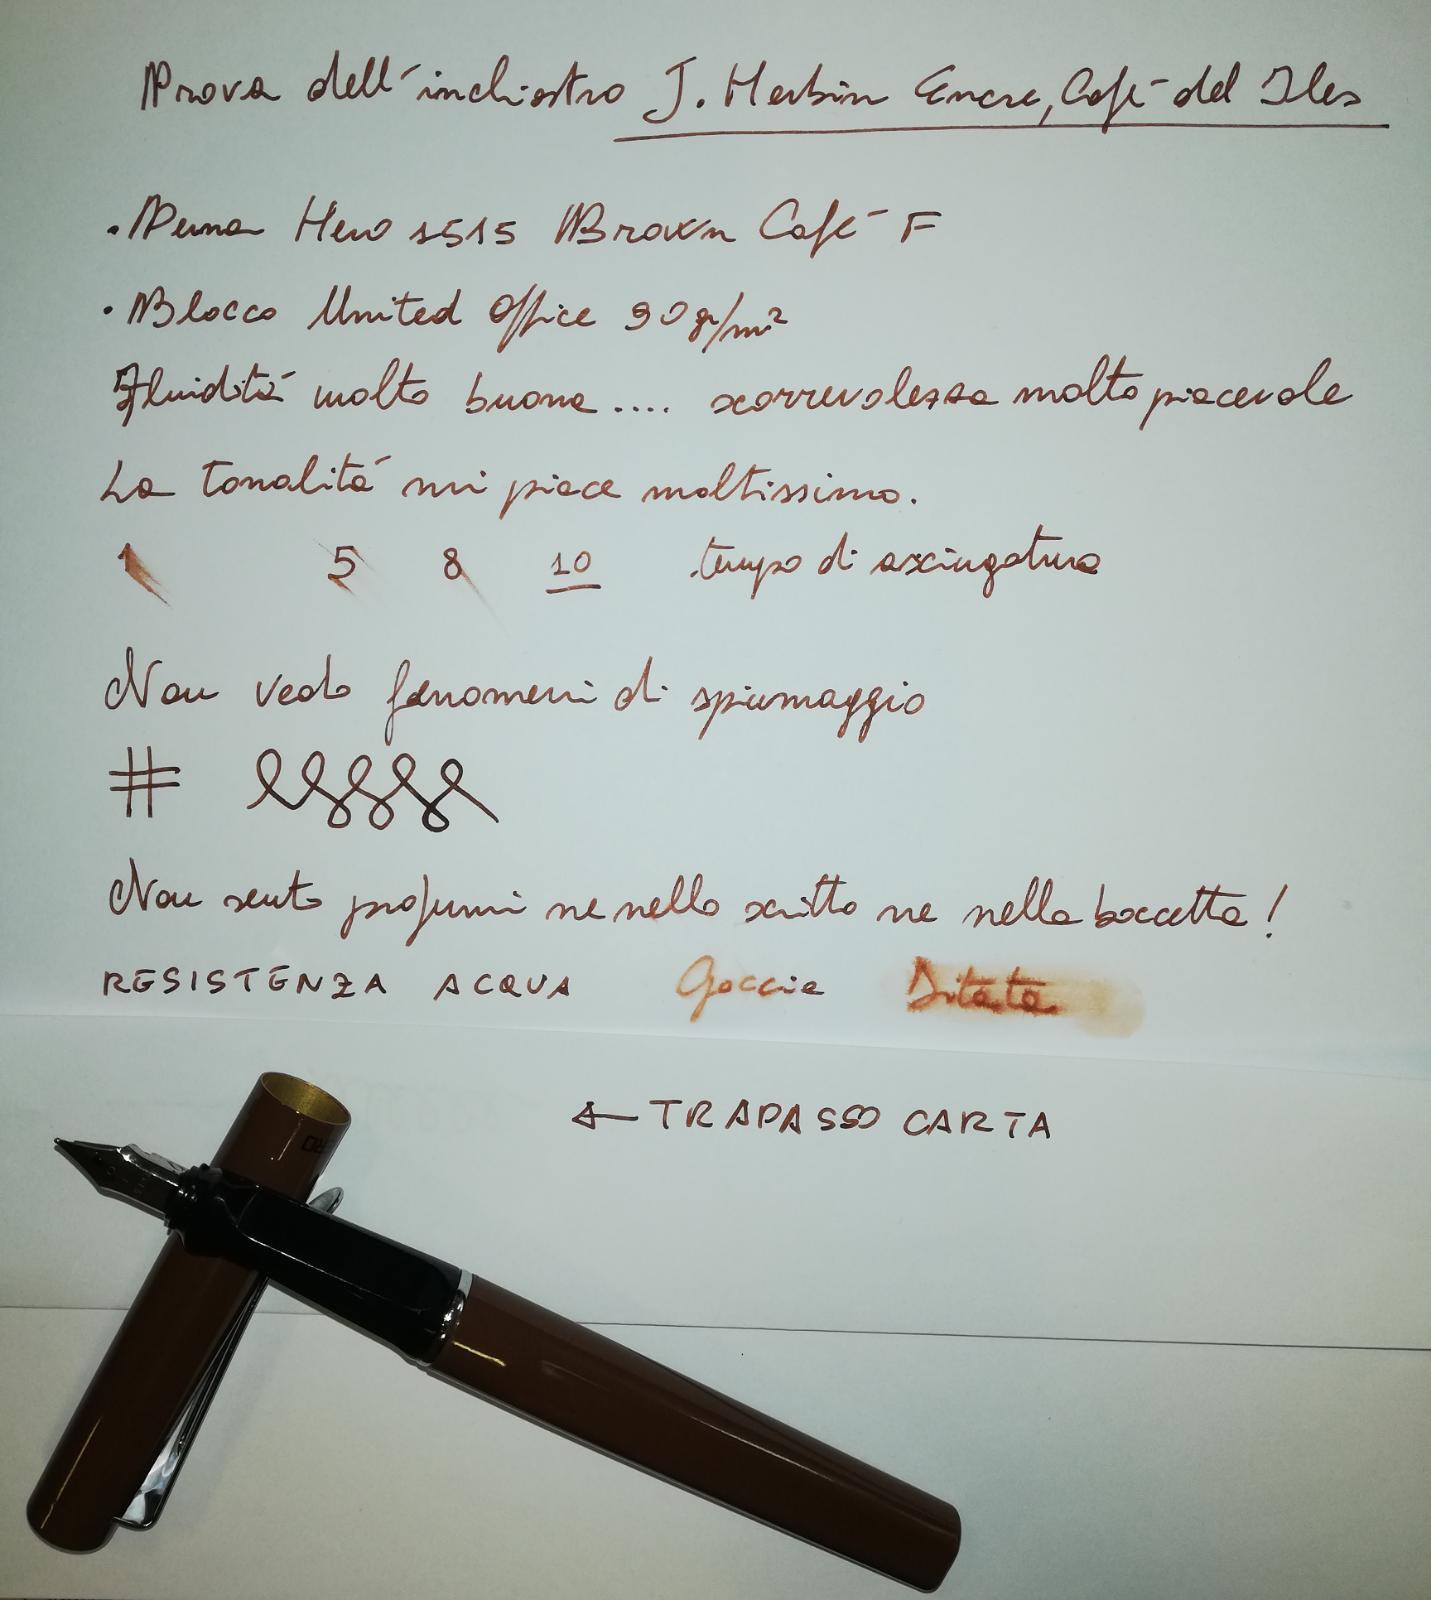 Prova dell'inchiostro J. Herbin Encre, Café del Iles
• Penna Hero 1515 Brown Café F
• Blocco United Office 90gr/m²
Fluidità molto buona.... scorrevolezza molto piacevole
La tonalità mi piace moltissimo.
1 5 8 10 tempo di asciugatura
Non vedo fenomeni di spiumaggio
#
Non sento profumi ne nello scritto ne nella boccetta!
RESISTENZA ACQUA Goccia Ditata
← TRAPASSO CARTA